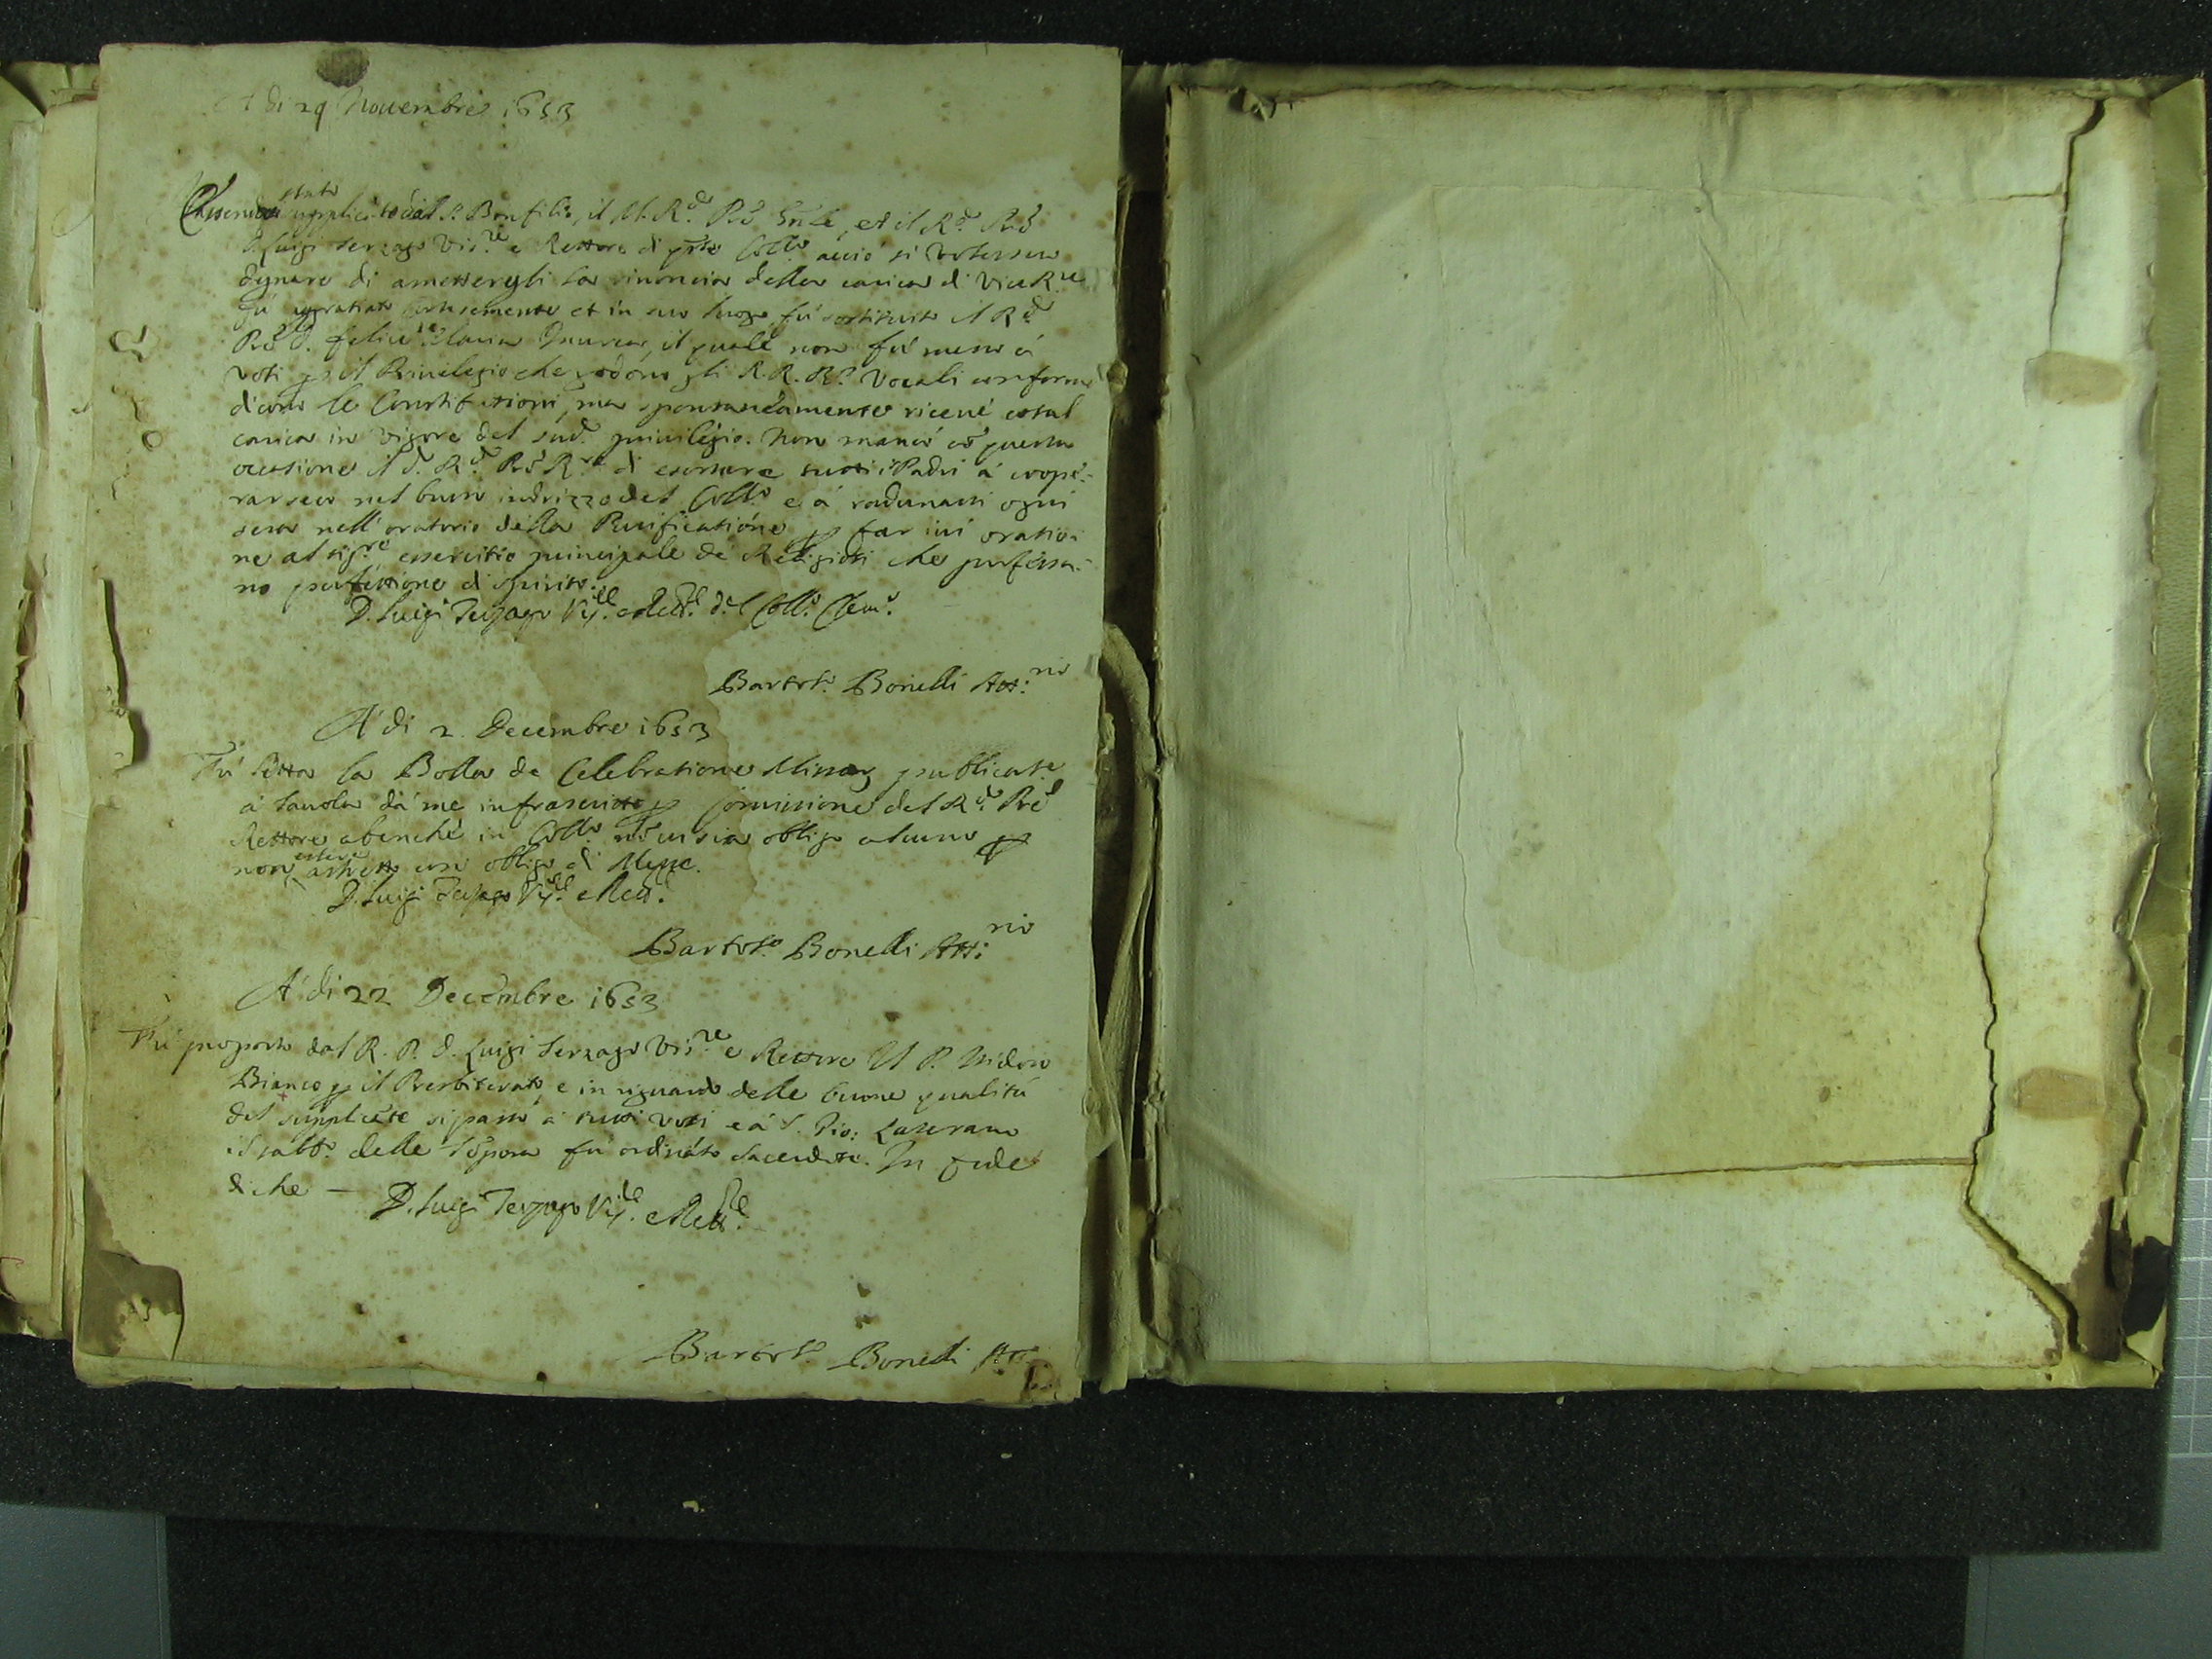 A di 29 Novembre 1653
Essendo stato supplicato dal P. Bonfilio, il M. R.do P.re Gn̄le, et il R.do P.re
D. Luigi Terzago Vis.re e Rettore di q̄sto Coll.o acciò si volessero
degnare di amettergli la rinoncia della carica di Vice R.re
fù gratiato cortesemente et in suo luogo fù sostituito il R.do
P.re D. Felice, il quale non fù messo à
voti ꝑ il Privilegio che godono gli R.R. P.P. Vocali conforme
dicono le Constitutioni, ma spontaneamente ricevé cotal
carica in vigore del sud.o privilegio. Non mancò cō questa
occasione il d.o R.do P.re R.re di essortare tutti i Padri à coope-
rar seco nel buon indrizzo del Coll.o e à radunarsi ogni
sera nell'oratorio della Purificatione ꝑ far ivi oratio-
ne al Sig.re essercitio principale de Religiosi che professa-
no perfettione di spirito.
D. Luigi Terzago Vis.re e Rett.re del Coll.o Clem.o
Bartol.o Bonelli Att.rio
A di 2. Decembre 1653
Fù letta la Bolla de Celebratione Missarū publicate
à tavola dà me infrascritto ꝑ comissione del R.do P.re
Rettore abenché in Coll.o nō vi sia obligo alcuno ꝑ
non essere astretto con obligo di Messe.
D. Luigi Terzago Vis.re e Rett.re
Bartol.o Bonelli Att.rio
A di 22 Decēmbre 1653
Fù proposto dal R. P. D. Luigi Terzago Vis.re e Rettore Il P. Isidoro
Bianco ꝑ il Presbiterato, e in riguardo delle buone qualità
del supplicāte si passò à tutti voti e à S. Gio: Laterano
il sabb.o delle Tēpora fù ordinato Sacerdote. In fede
di che — D. Luigi Terzago Vis.re e Rett.re
Bartol.o Bonelli Att.